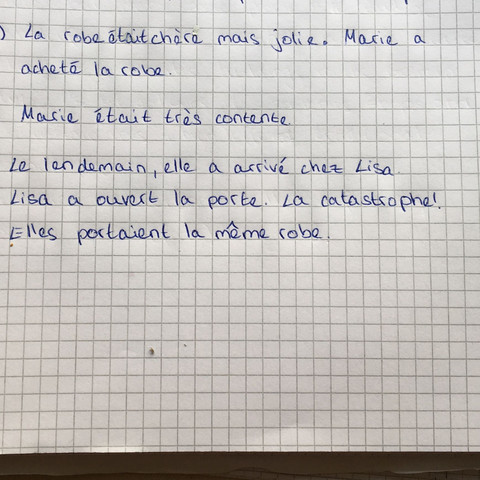 ) La robe était chère mais jolie. Marie a
acheté la robe.
Marie était très contente
Le lendemain, elle a arrivé chez Lisa
Lisa a ouvert la porte. La catastrophe!
Elles portaient la même robe.